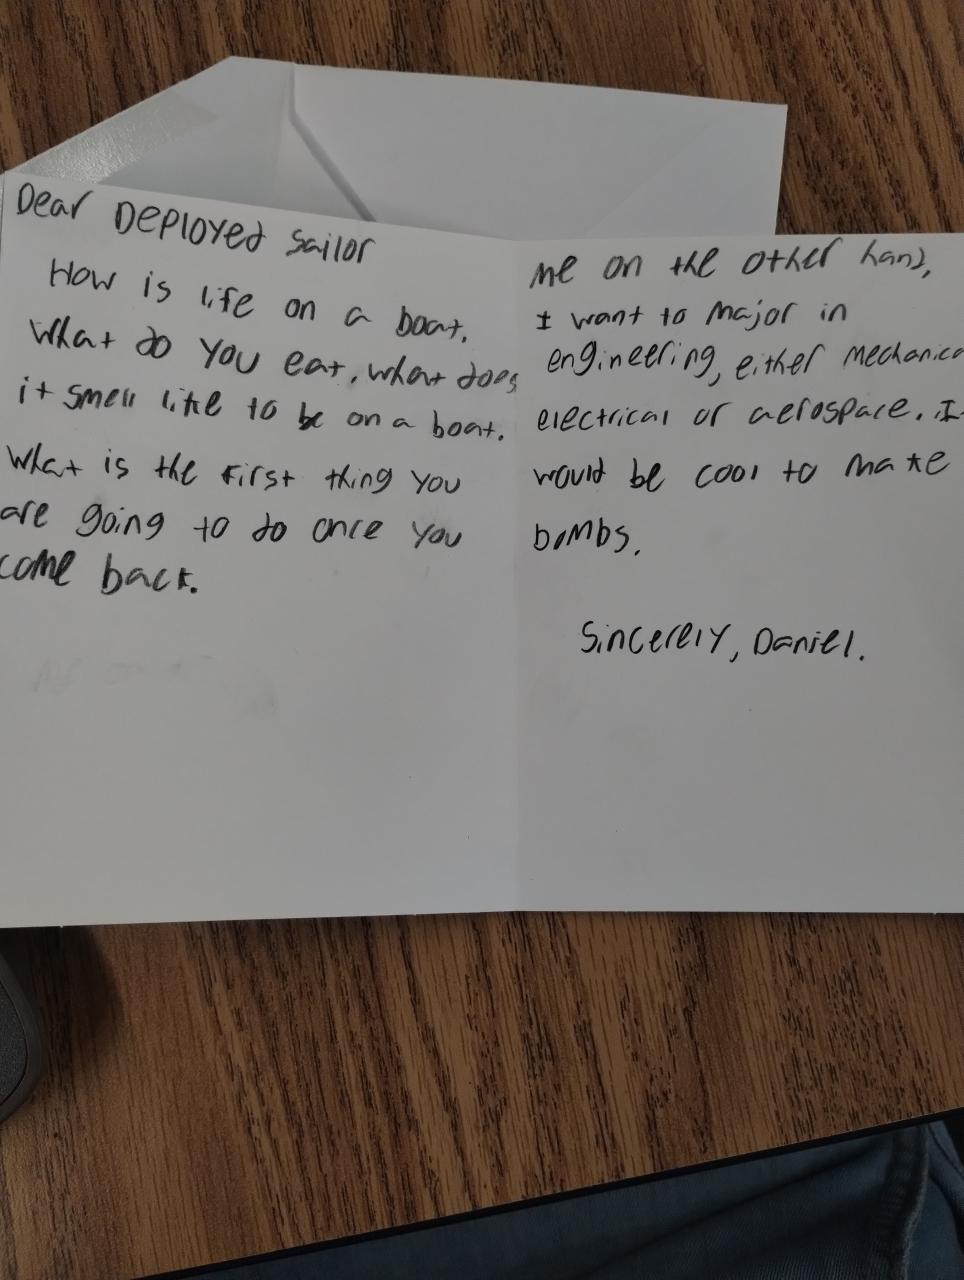 Dear Deployed Sailor
How is life on a boat.
What do you eat, what does
it smell like to be on a boat.
What is the first thing you
are going to do once you
come back.
Me on the other hand,
I want to major in
engineering, either mechanica
electrical or aerospace. I
would be cool to make
bombs.
Sincerely, Daniel.